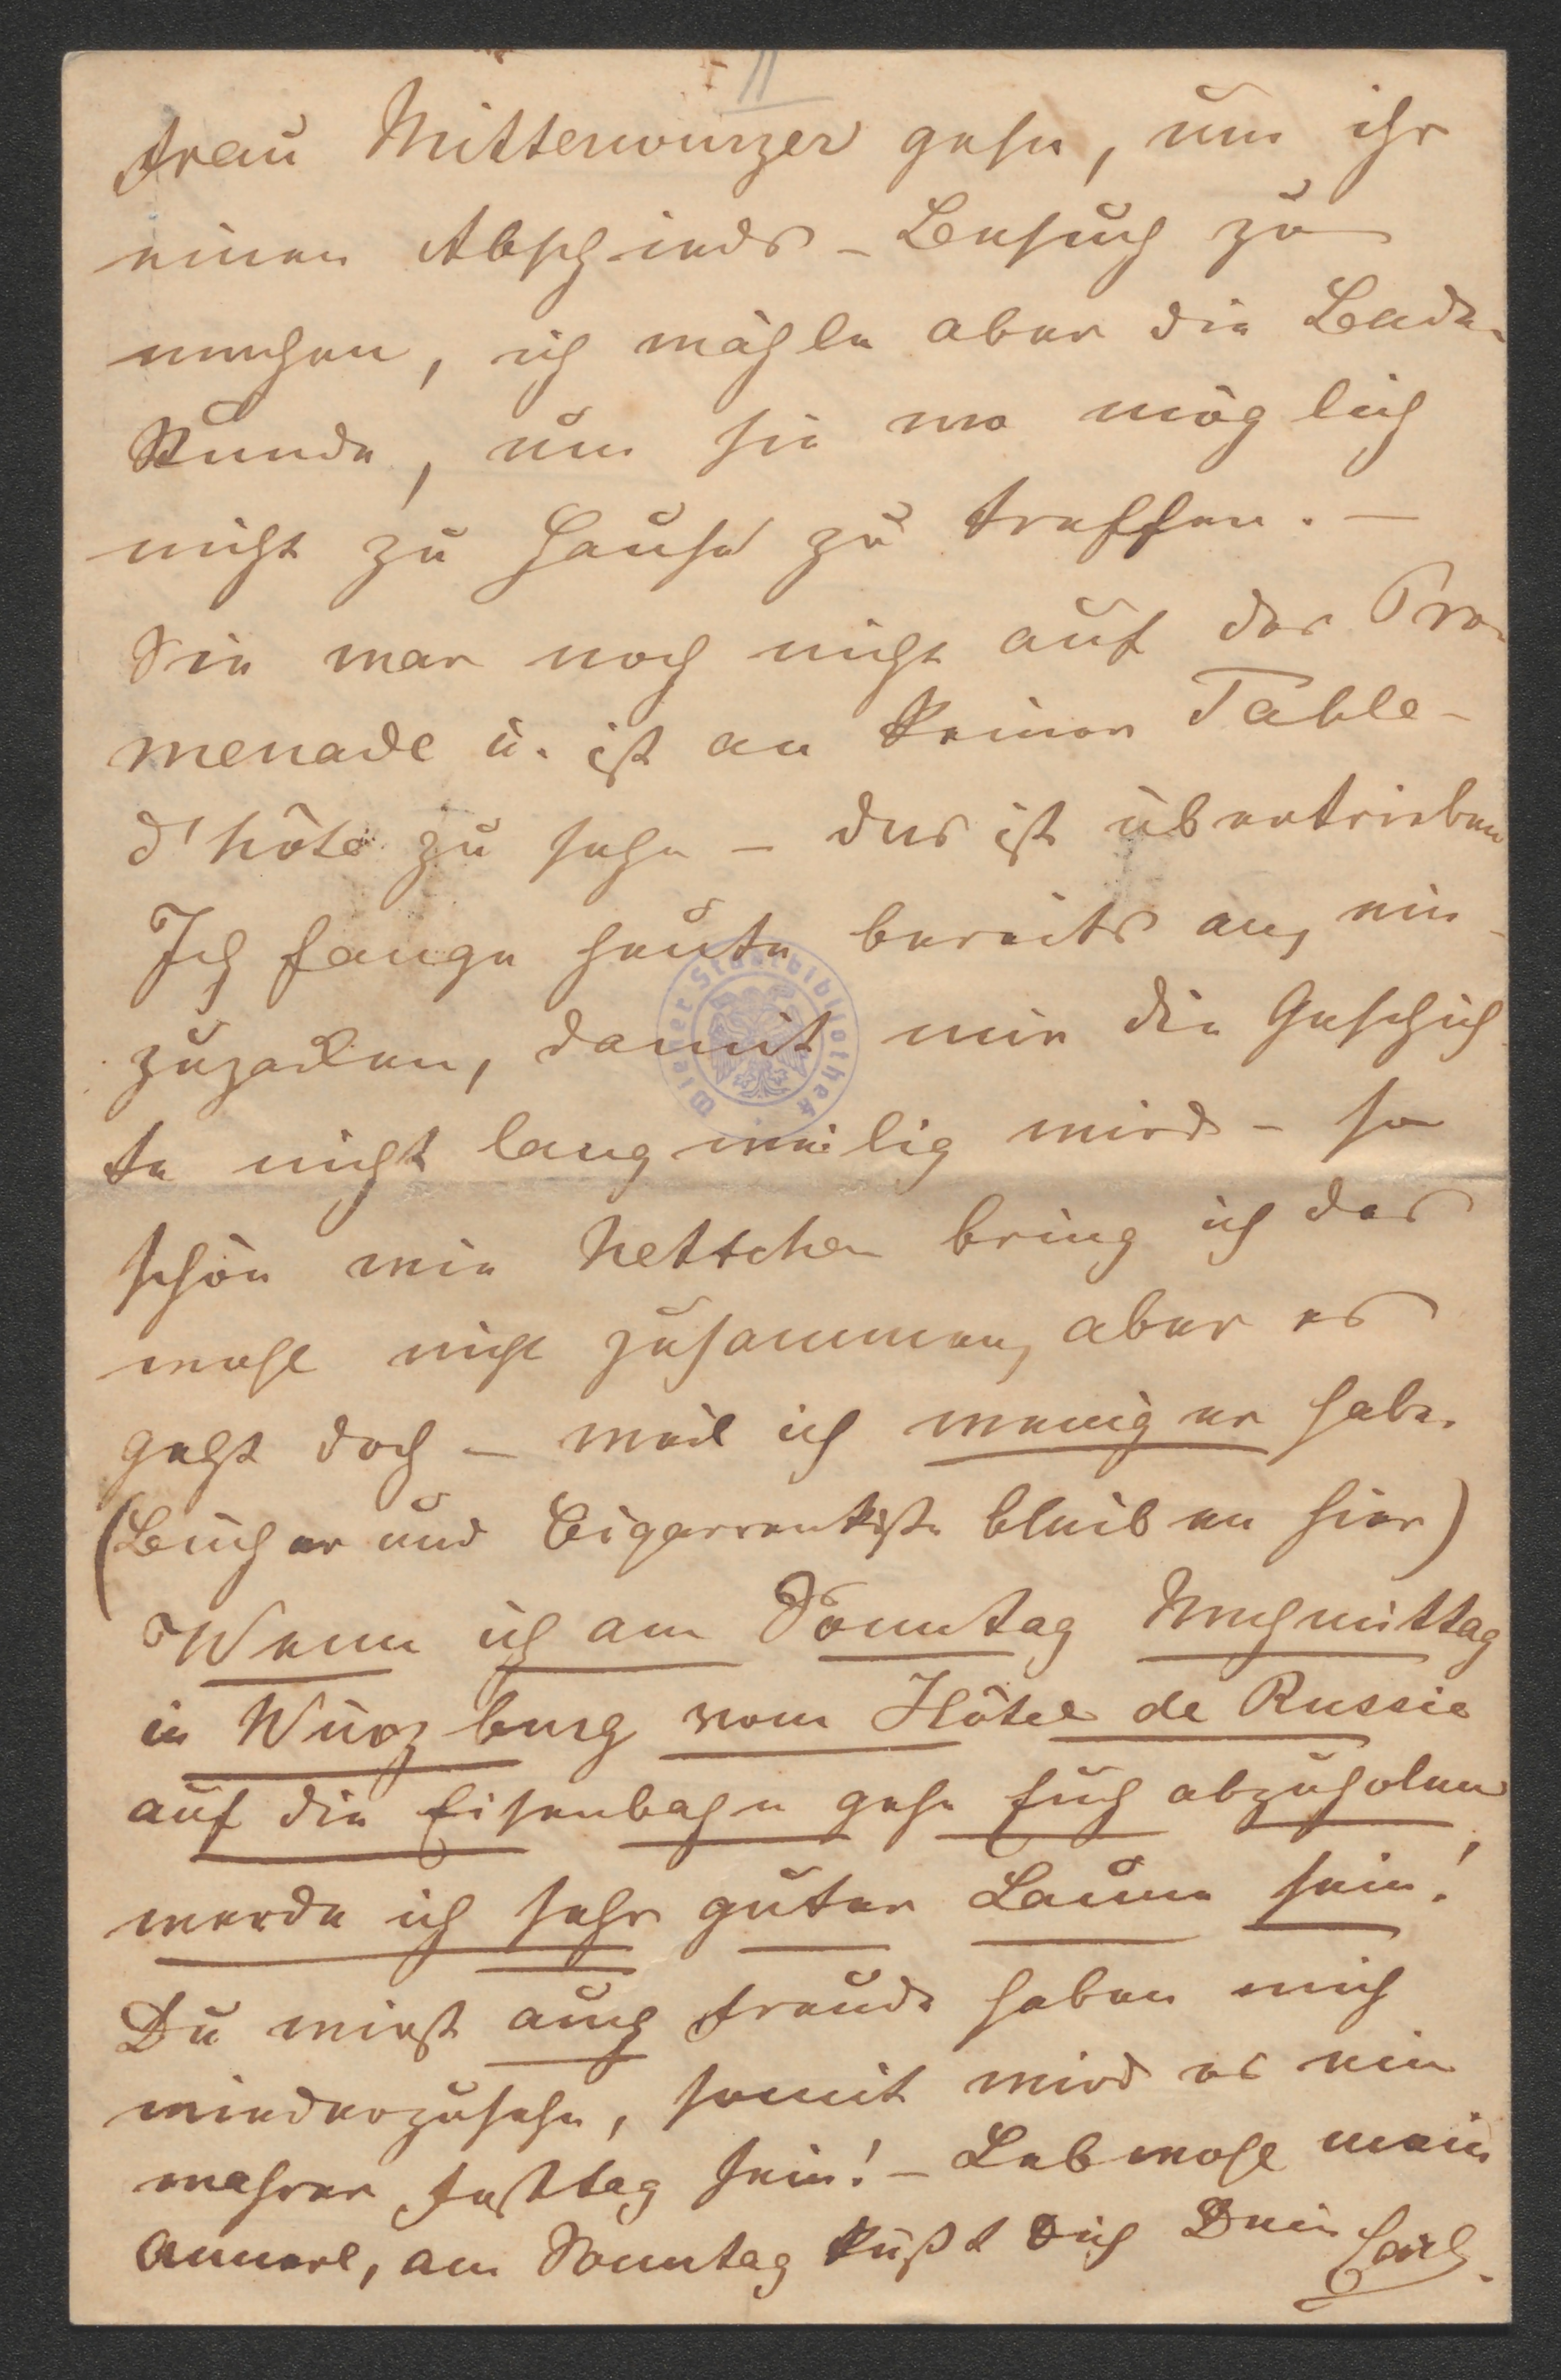 11
Frau Mitterwurzer gehn, um ihr
einen Abschieds-Besuch zu
machen, ich wähle aber die Bade-
stunde, um sie wo möglich
nicht zu Hause zu treffen. —
Sie war noch nicht auf der Pro-
menade u. ist an keiner Table-
d'hôte zu sehn – das ist übertrieben
Ich fange heute bereits an, ein-
zupacken, damit mir die Geschich
te nicht langweilig wird – so
schön wie Nettchen bring ich das
wohl nicht zusammen, aber es
geht doch – weil ich weniger habe.
(Bücher und Cigarrenkiste bleiben hier)
Wenn ich am Sonntag Nachmittag
in Würzburg vom Hôtel de Russie
auf die Eisenbahn gehe Euch abzuholen
werde ich sehr guter Laune sein!
Du wirst auch Freude haben mich
wiederzusehn, somit wird es ein
wahrer Festtag sein! – Lebwohl mein
Annerl, am Sonntag küßt Dich Dein Carl.
Wiener Stadtbibliothek